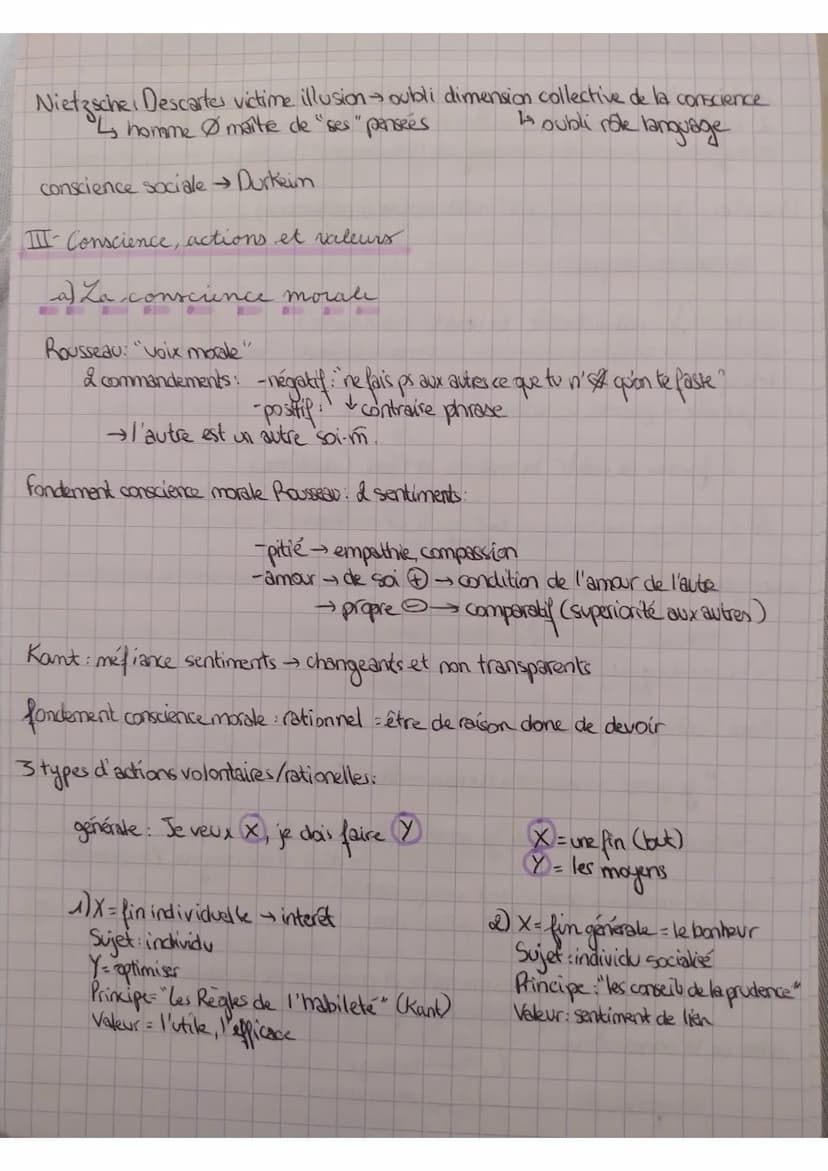 Nietzsche: Descartes victime illusion → oubli dimension collective de la conscience
↳ homme Ø maîte de "ses" pensées ↳ oubli rôle language
conscience sociale → Durkeim
III- Conscience, actions et valeurs
a) La conscience morale
Rousseau: "voix morale"
2 commandements: -négatif: "ne fais ps aux autres ce que tu n' qu'on te fasse"
-positif: ↓ contraire phrase
→ l'autre est un autre soi-m̄.
Fondement conscience morale Rousseau: 2 sentiments:
-pitié → empathie, compassion
-amour → de soi ⊕ → condition de l'amour de l'autre
→ propre ⊖ → comparatif (superiorité aux autres)
Kant: méfiance sentiments → changeants et non transparents
fondement conscience morale: rationnel = être de raison donc de devoir
3 types d'actions volontaires/rationelles:
générale: Je veux X, je dois faire Y
X = une fin (but)
Y = les moyens
1) X = fin individuelle → interêt
Sujet: individu
Y = optimiser
Principe = "Les Règles de l'habileté" (Kant)
Valeur = l'utile, l'efficace
2) X = fin générale = le bonheur
Sujet: individu socialisé
Principe: "les conseils de la prudence"
Valeur: sentiment de lien